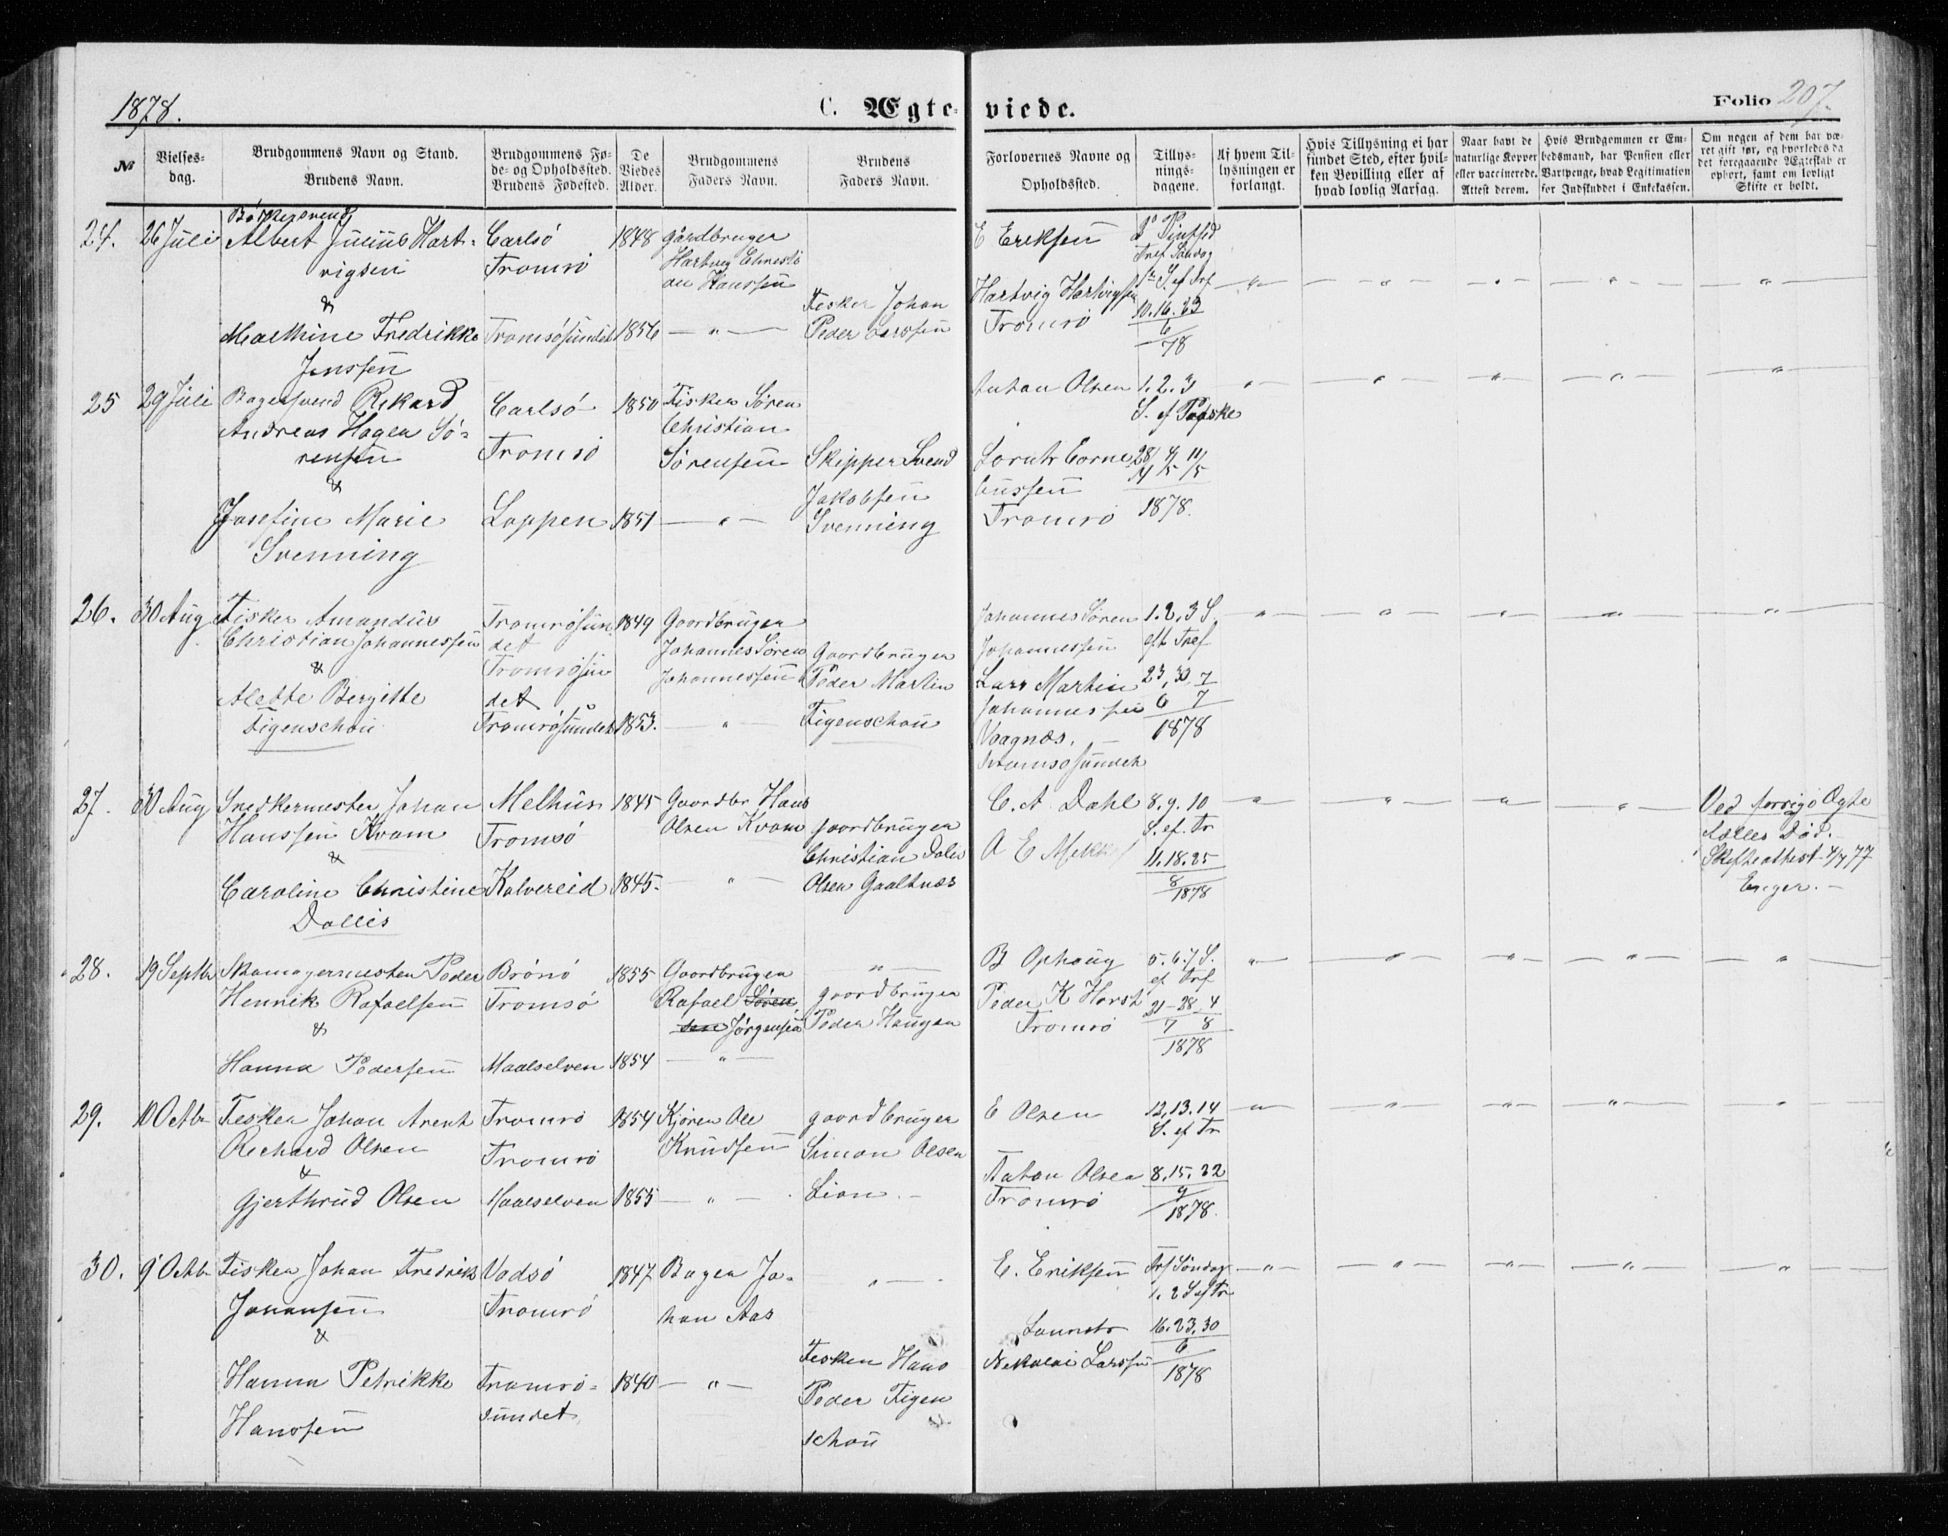 1878.
C. Ægteviede.
Folio 207.
№
Vielsesdag.
Brudgommens Navn og Stand.
Brudens Navn.
Brudgommens Føde- og Opholdssted.
Brudens Fødested.
De Viedes Alder.
Brudgommens Faders Navn.
Brudens Faders Navn.
Forlovernes Navne og Opholdssted.
Tillysningsdagene.
Af hvem Tillysningen er forlangt.
Hvis Tillysning ei har fundet Sted, efter hvilken Bevilling eller af hvad lovlig Aarsag.
Naar havt de naturlige Kopper eller vaccinerede. Attest derom.
Hvis Brudgommen er Embedsmand, har Pension eller Vartpenge, hvad Legitimation for Indskuddet i Enkekassen.
Om nogen af dem har været gift før, og hvorledes da det foregaaende Ægteskab er ophørt, samt om lovligt Skifte er holdt.
24. 26 Juli
Bödkersvend
Albert Julius Hart-
vigsen
&
Mathine Fredrikke
Jenssen
Carlsö
Tromsö
Tromsösundet
1848
1856
Gårdbruger
Hartvig Christi
an Hanssen
— " —
Fisker Johan
Peder Jenssen
E Eriksen
Hartvig Hartvigsen
Tromsö
Tref Söndag
S. ef Trf
10. 16. 23
6
78
25 29 Juli
Bagersvend Rikard
Andreas Hagen Sö-
rensen
&
Josefine Marie
Svenning
Carlsö
Tromsö
Loppen
1850
1851
Fisker Sören
Christian
Sörensen
— " —
Skipper Svend
Jakobsen
Svenning
Anton Olsen
Corne
liussen
Tromsö
1. 2. 3
S. ef Påske
1878.
26. 30 Aug
Fisker Amandus
Christian Johannessen
&
Aledte Bergitte
Figenschou
Tromsösun
det
Tromsösun
det
Tromsösundet
1849
1853.
Gaardbruger
Johannes Sören
Johannessen
"
Gaardbruger
Peder Martin
Figenschou
Johannes Sören
Johannessen
Lars Martin
Johannessen
Vaagnæs.
Tromsösundet
1. 2. 3 S.
eft Tref
23, 30 7
6 7
1878
27. 30 Aug
Snedkermester Johan
Hanssen Kvam
&
Caroline Christine
Dallis
Melhus
Tromsö
Kolvereid
1845
1845.
Gaardbr Hans
Olsen Kvam
"
gaardbruger
Christian Dalis
Olsen Gaaltnæs
C. A Dahl
A E
8. 9. 10
S. ef. Tr
11. 18. 25
8
1878
Ved forrige Ægte
fælles Död.
Skifteattest 4/7 77
28. 19 Septbr
Skomagermester Peder
Henrik Rafaelsen
&
Hanna Pedersen
Brönö
Tromsö
Maalselven
1855
1854
Gaardbruger
Rafael Sören
sen Jörgensen
— " —
"
gaardbruger
Peder Haugen
B Ophaug
Peder K Horst
Tromsö
5. 6. 7 S.
ef Trf
21 - 28 4
7 8
1878
29. 1 Octbr
Fisker Johan Arent
Richard Olsen
&
Gjerthrud Olsen
Tromsö
Tromsö
Maalselven
1854
1855
Kjören Ole
Knudsen
— " —
gaardbruger
Simon Olsen
Lian.
E Olsen
Anton Olsen
Tromsö
12, 13. 14
S. ef Tr
8. 15. 22
9
1878.
30. 9 Octbr
Fisker Johan Fredrik
Johansen
&
Hanna Petrikke
Hanssen
Vadsö
Tromsö
Tromsö-
sundet
1847
1840
Bager Jo-
han Aas
— " —
"
Fisker Hans
Peder Figen
schou
E. Eriksen
Nikolai Larssen
Trf Söndag
1. 2 S ef Tr
16. 23. 30
6
1878